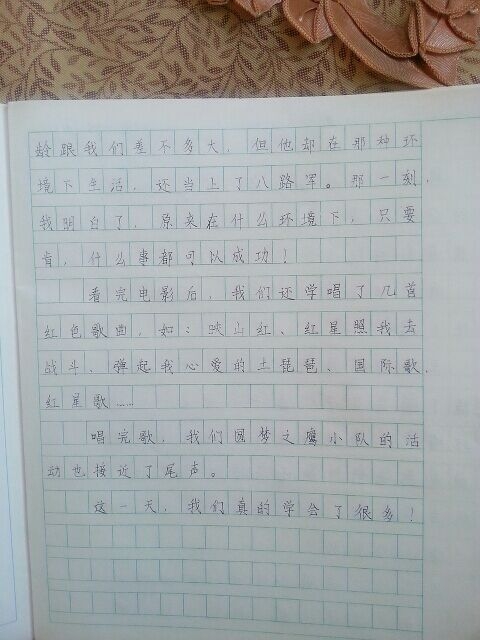 龄跟我们差不多大，但他却在那种环
境下生活，还当上了八路军。那一刻，
我明白了，原来在什么环境下，只要
肯，什么事都可以成功！
看完电影后，我们还学唱了几首
红色歌曲，如：映山红、红星照我去
战斗、弹起我心爱的土琵琶、国际歌、
红星歌……
唱完歌，我们圆梦之鹰小队的活
动也接近了尾声。
这一天，我们真的学会了很多！